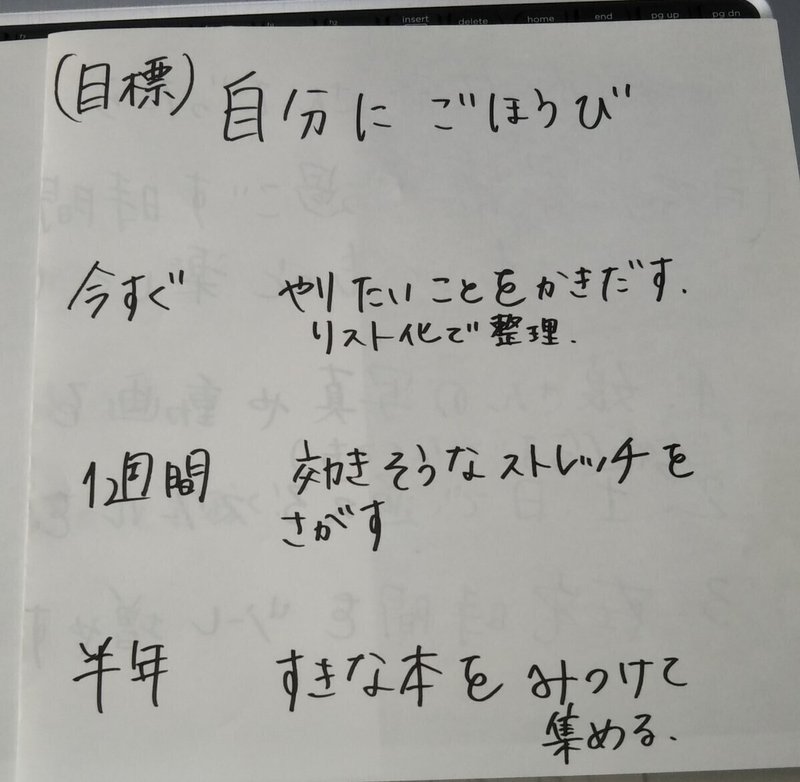 insert delete home end pg up pg dn
(目標) 自分に ごほうび
今すぐ やりたいことをかきだす.
リスト化で整理.
1週間 効きそうなストレッチを
さがす
半年 すきな本を みつけて
集める.